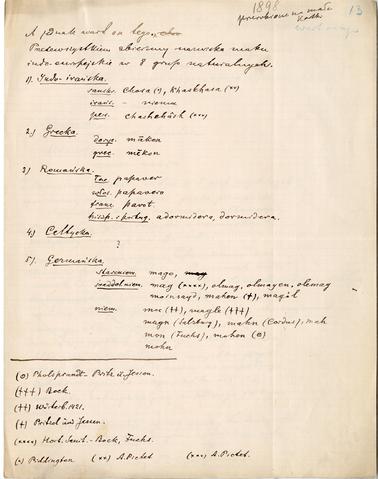 1898
przerobione na małe kartki
13
A jednak ward on tego
Przedewszystkiem zbierzmy nazwiska maku
indo-europejskie w 8 grup naturalnych.
1). Indo-irańska.
sanskr. Chasa (*), Khaskhasa (**)
irańs. - niema
pers. Chashchâsh (***)
2.) Grecka.
dorys. mākon
grec. mēkon
3) Romańska.
łac. papaver
włos. papavero
franc. pavot.
hiszp. i portug. adormidera, dormidera.
4) Celtycka.
?
5). Germańska.
staroniem. mago,
średdolniem. mag (****), olmag, olmagen, olemag
mansayd, mahon (†), magöl
niem. mae (††), magle (†††)
magn (Salzburg), mahn (Cordus), mah
mon (Fuchs), mahon (o)
mohn
(o) Pholsprundt - Pritz. u. Jessen.
(†††) Bock.
(††) Wörterb. 1421.
(†) Pritzel und Jessen.
(****) Hort. Sanit. - Bock, Fuchs.
(*) Piddington (**) A. Pictet (***) A. Pictet.